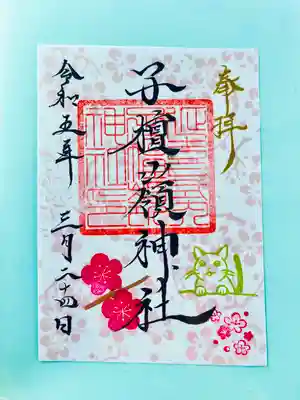 奉拝
子檀嶺神社
令和五年 三月二十四日